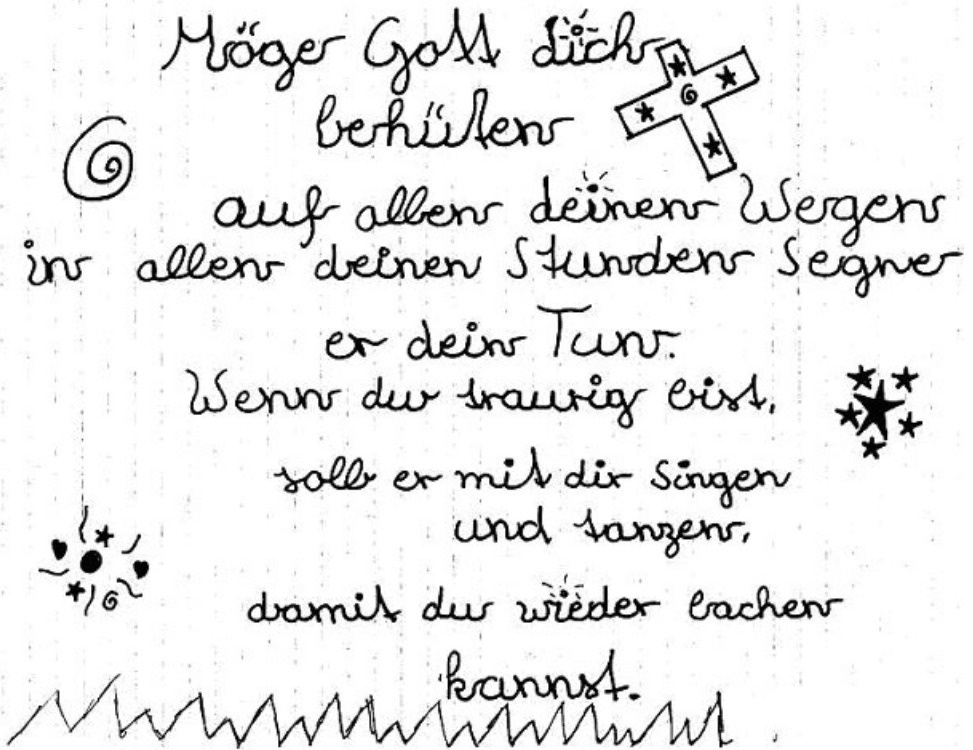 Möge Gott dich
behüten
auf allen deinen Wegen
in allen deinen Stunden Segne
er dein Tun.
Wenn du traurig bist,
soll er mit dir Singen
und tanzen,
damit du wieder lachen
kannst.